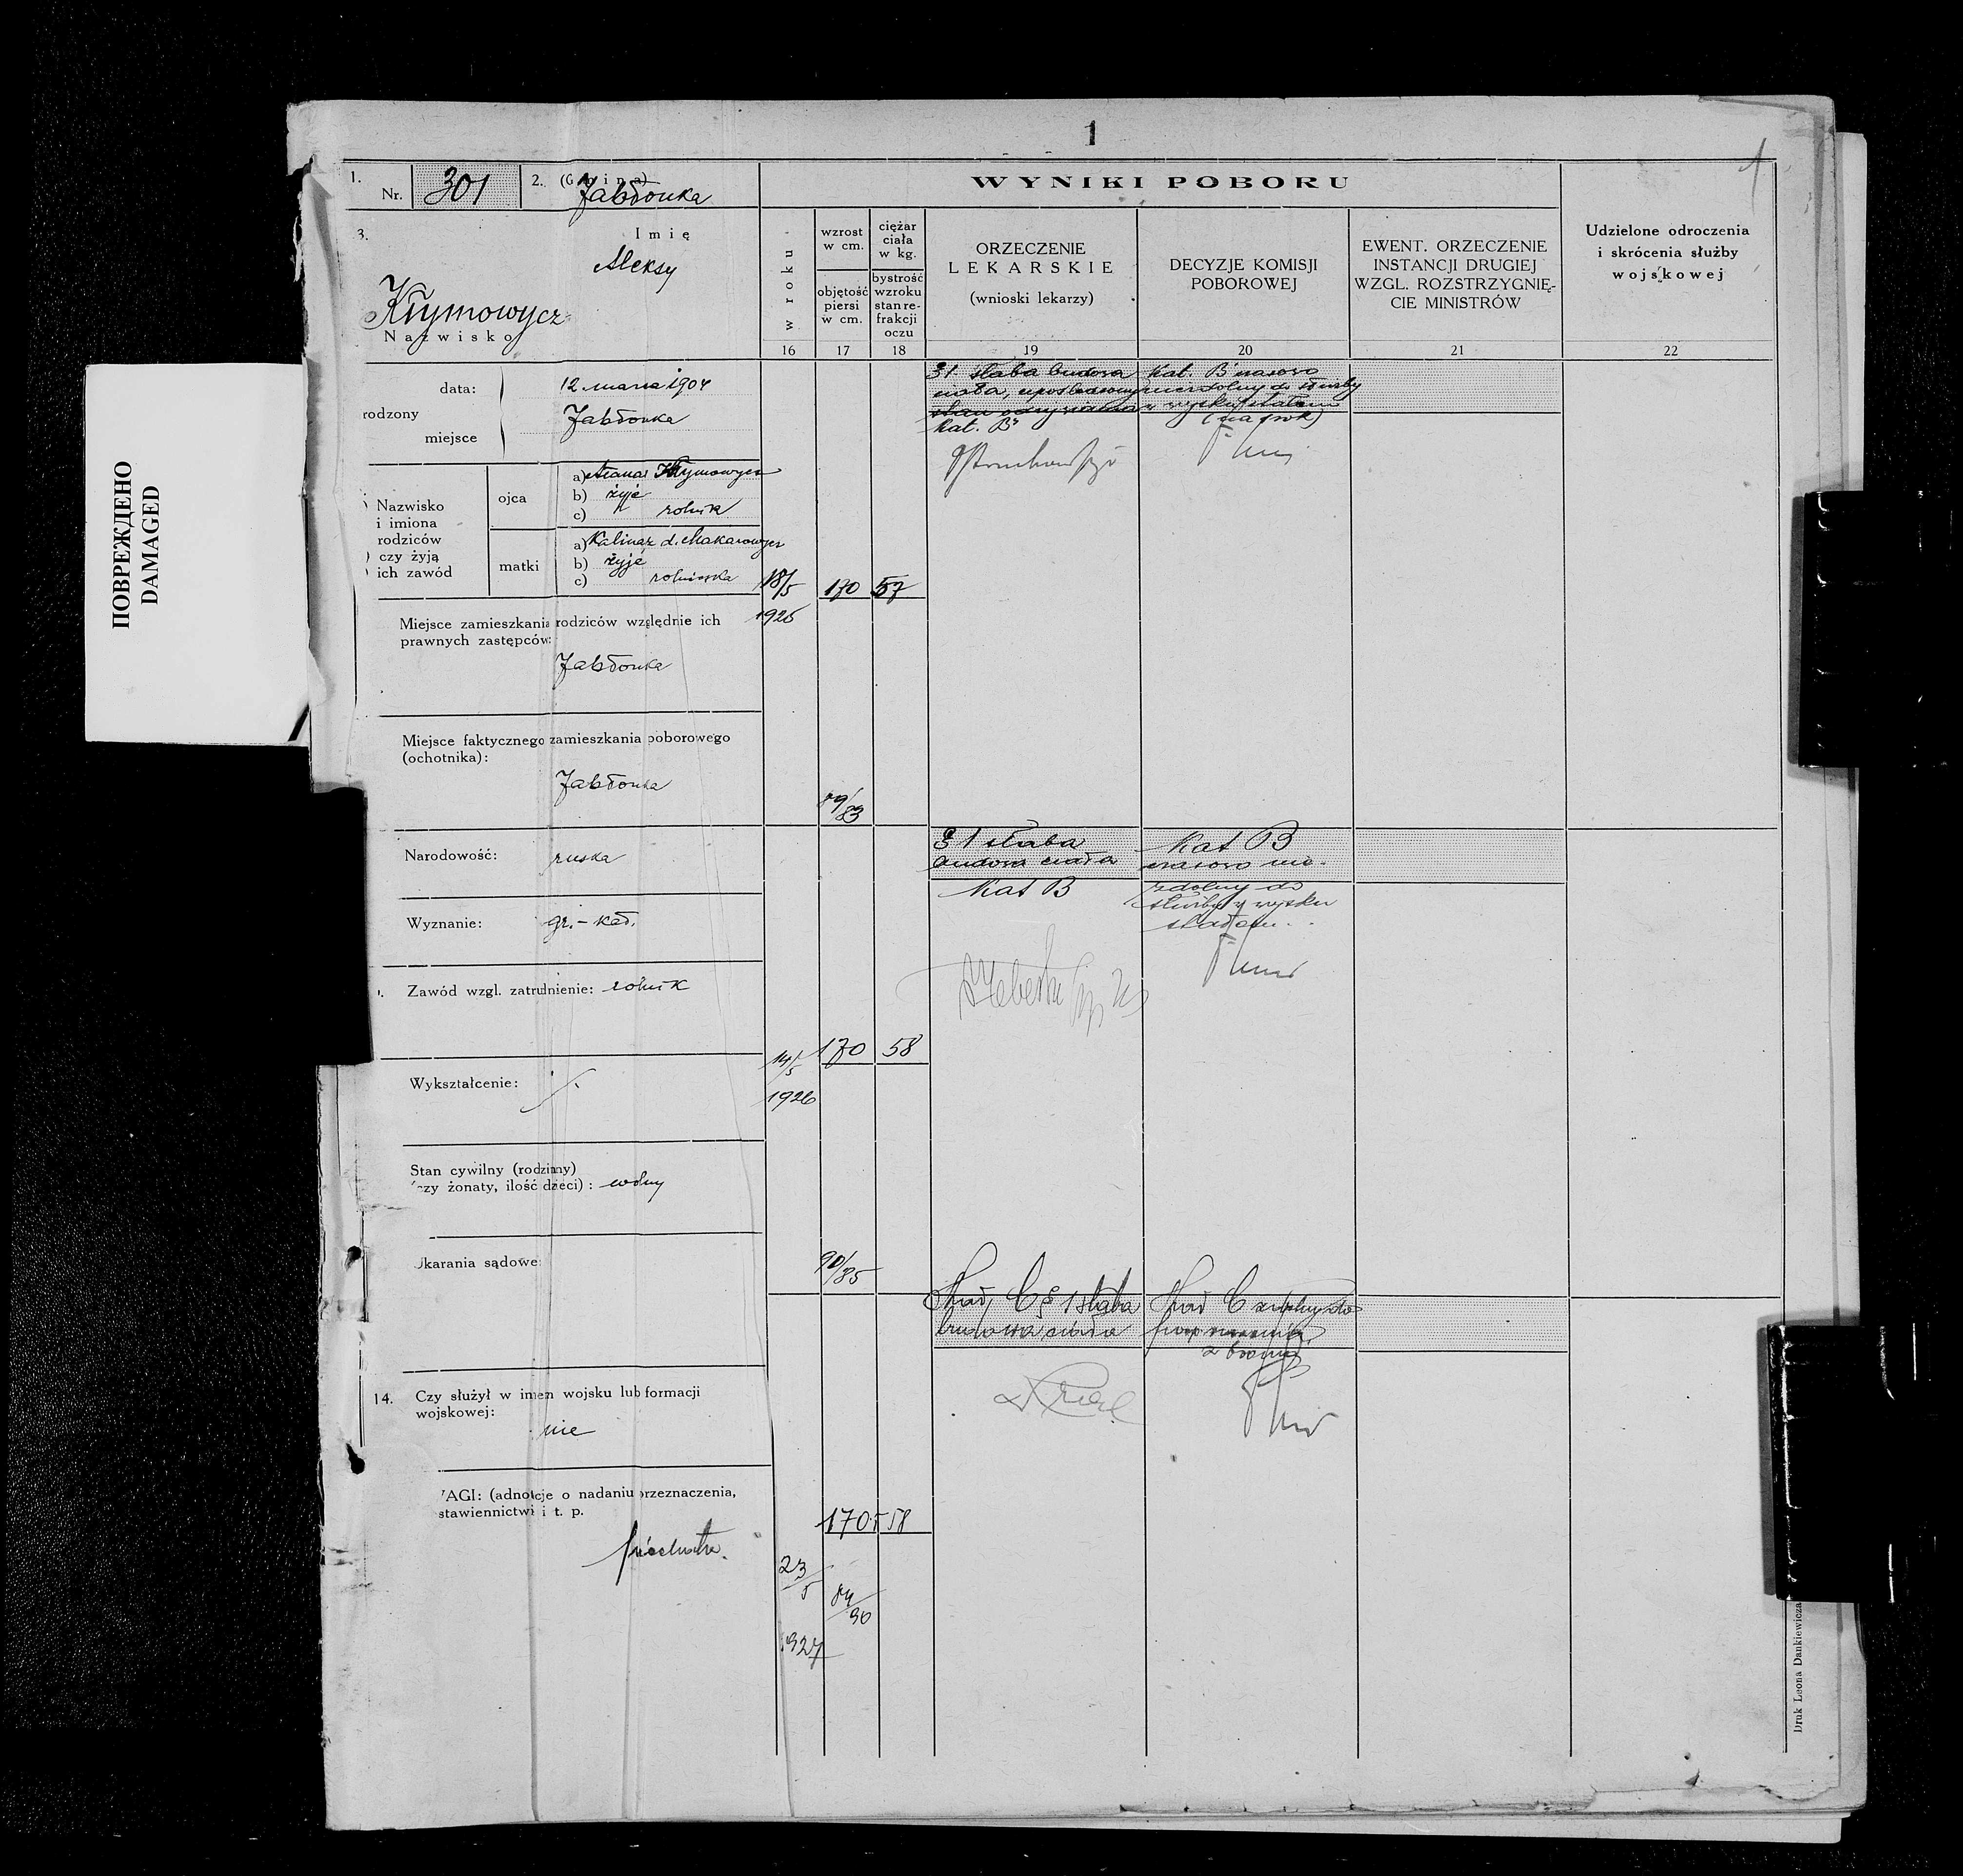 ПОВРЕЖДЕНО
DAMAGED
1
1.
Nr. 301
2. (Gmina)
Jabłonka
WYNIKI POBORU
3.
Imię
Aleksy
Kłymowycz
Nazwisko
w roku
wzrost
w cm.
objętość
piersi
w cm.
ciężar
ciała
w kg.
bystrość
wzroku
stan re-
frakcji
oczu
ORZECZENIE
LEKARSKIE
(wnioski lekarzy)
DECYZJE KOMISJI
POBOROWEJ
EWENT. ORZECZENIE
INSTANCJI DRUGIEJ
WZGL. ROZSTRZYGNIĘ-
CIE MINISTRÓW
Udzielone odroczenia
i skrócenia służby
wojskowej
16 17 18 19 20 21 22
data: 12 marca 1904
rodzony
miejsce Jabłonka
Nazwisko
i imiona
rodziców
czy żyją
ich zawód
ojca
a) Kłymowycz
b) żyje
c) rolnik
matki
a) d. Makarowycz
b) żyje
c)
Miejsce zamieszkania rodziców względnie ich
prawnych zastępców:
Jabłonka
Miejsce faktycznego zamieszkania poborowego
(ochotnika):
Jabłonka
Narodowość: ruska
Wyznanie: gr.-kat.
Zawód wzgl. zatrudnienie: rolnik
Wykształcenie:
Stan cywilny (rodzinny)
czy żonaty, ilość dzieci): wolny
karania sądowe:
14. Czy służył w innem wojsku lub formacji
wojskowej:
nie
AGI: (adnotacje o nadaniu przeznaczenia,
stawiennictwie i t. p.
piechota.
18/5
170 57
89/83
§1 słaba budowa
ciała,
Kat. B
Kat. B czasowo
niezdolny do służby
w wojsku stałem
(na rok)
14/5
1926
170 58
90/85
§ 1 słaba
budowa ciała
Kat B
Kat B
czasowo nie-
zdolny do
służby w wojsku
stałem.
23/5
1927
170,5 58
C § 1 słaba
budowa ciała
C
z bronią
Druk Leona Dankiewicza